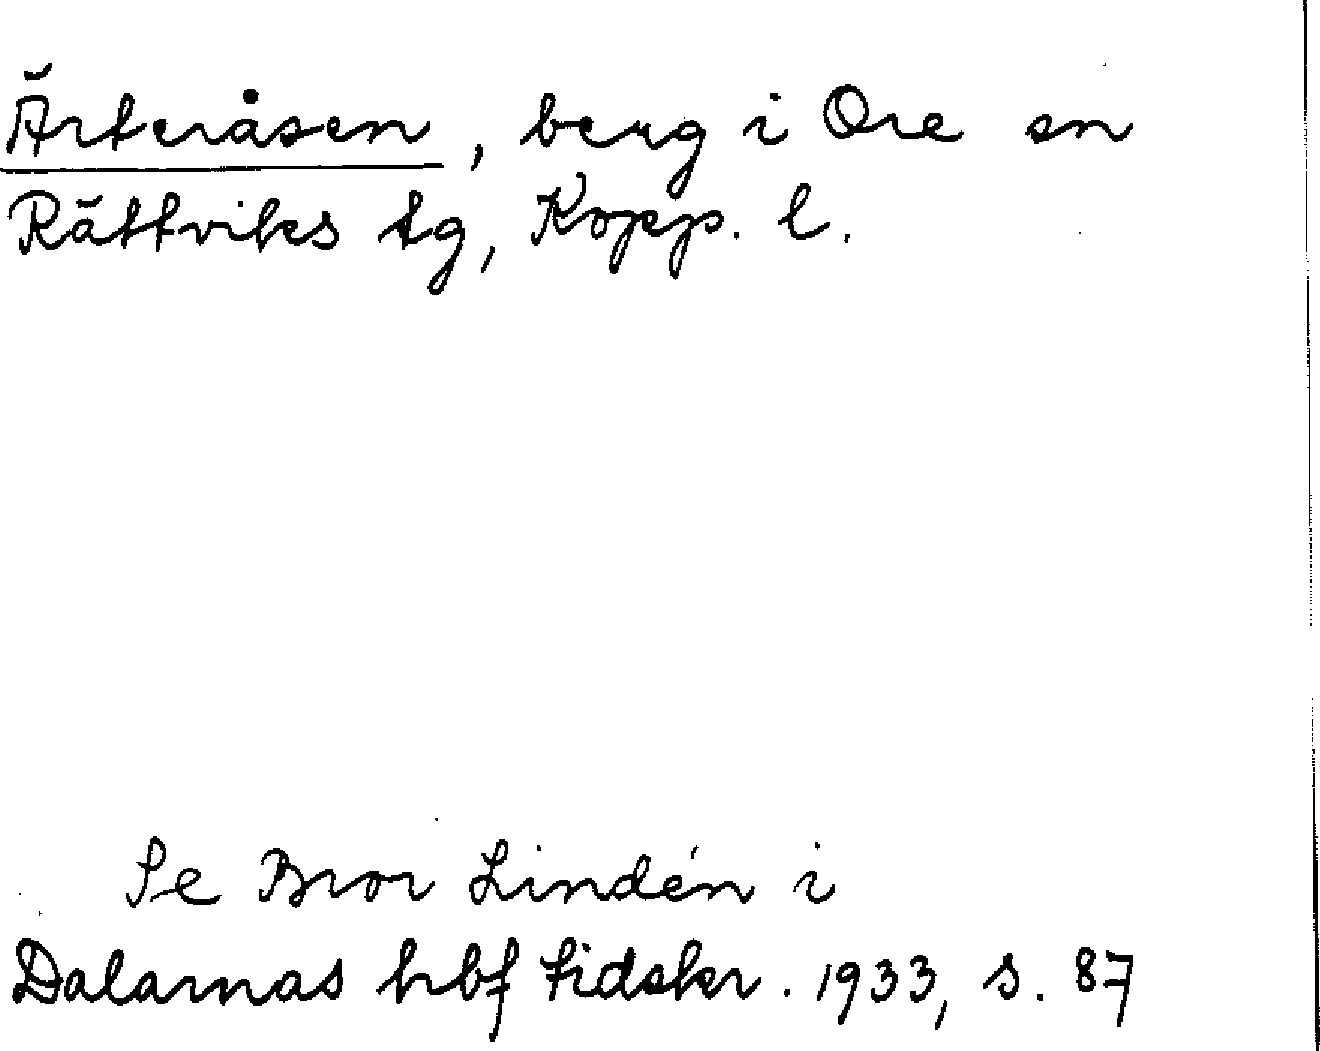 Ärteråsen, berg i Ore sn
Rättviks tg, Kopp. l.
Se Bror Lindén i
Dalarnas hbf tidskr. 1933, s. 87